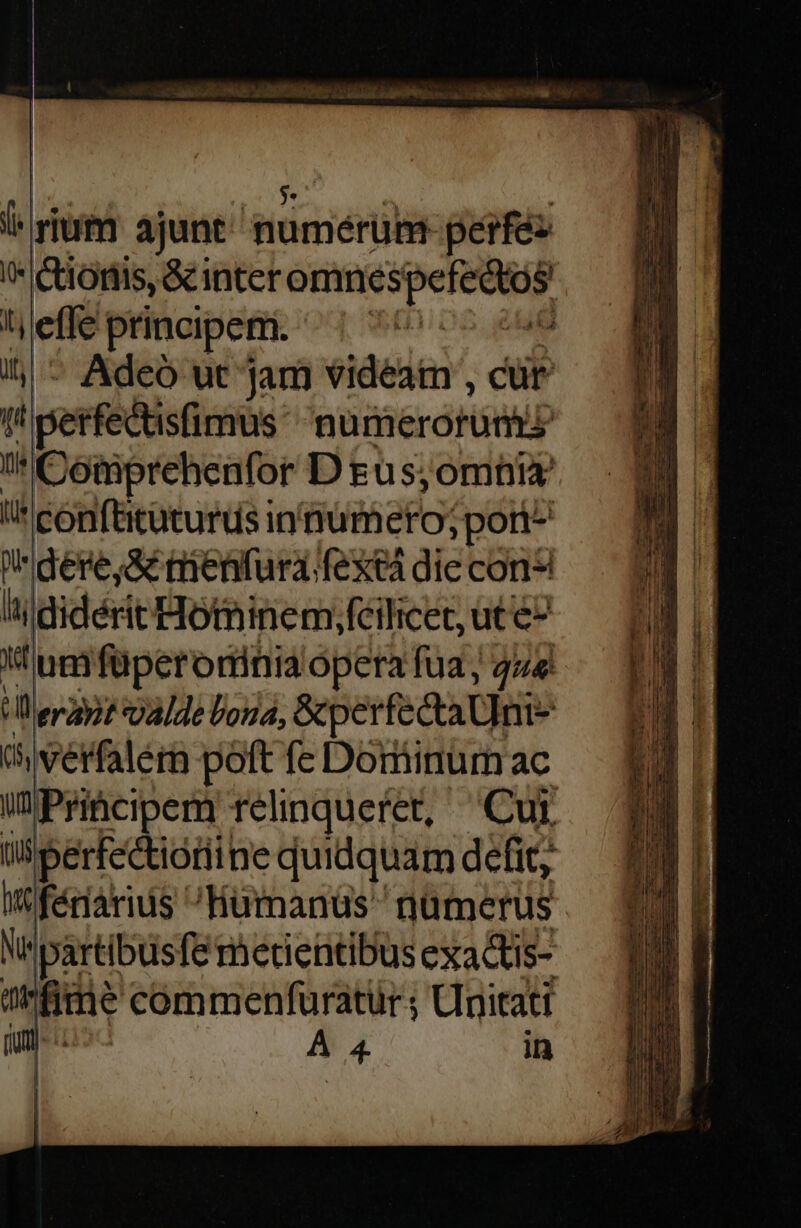 5.
rium ajunt numerum perfe-
ctionis, & inter omnes pefectos
esse principem.
Adeò ut jam videam, cur
perfectissimus numerorum
Comprehensor DEUS, omnia
constituturus in numero, pon-
dere, & mensura, sextâ die con-
diderit Hominem, scilicet, ut e-
um super omnia opera sua, quæ
erant valde bona, & perfecta Uni-
versalem post se Dominum ac
Principem relinqueret, Cui
perfectioni ne quidquam desit,
senarius humanus numerus
partibus se metientibus exactis-
simè commensuratur; Unitati
A 4 in